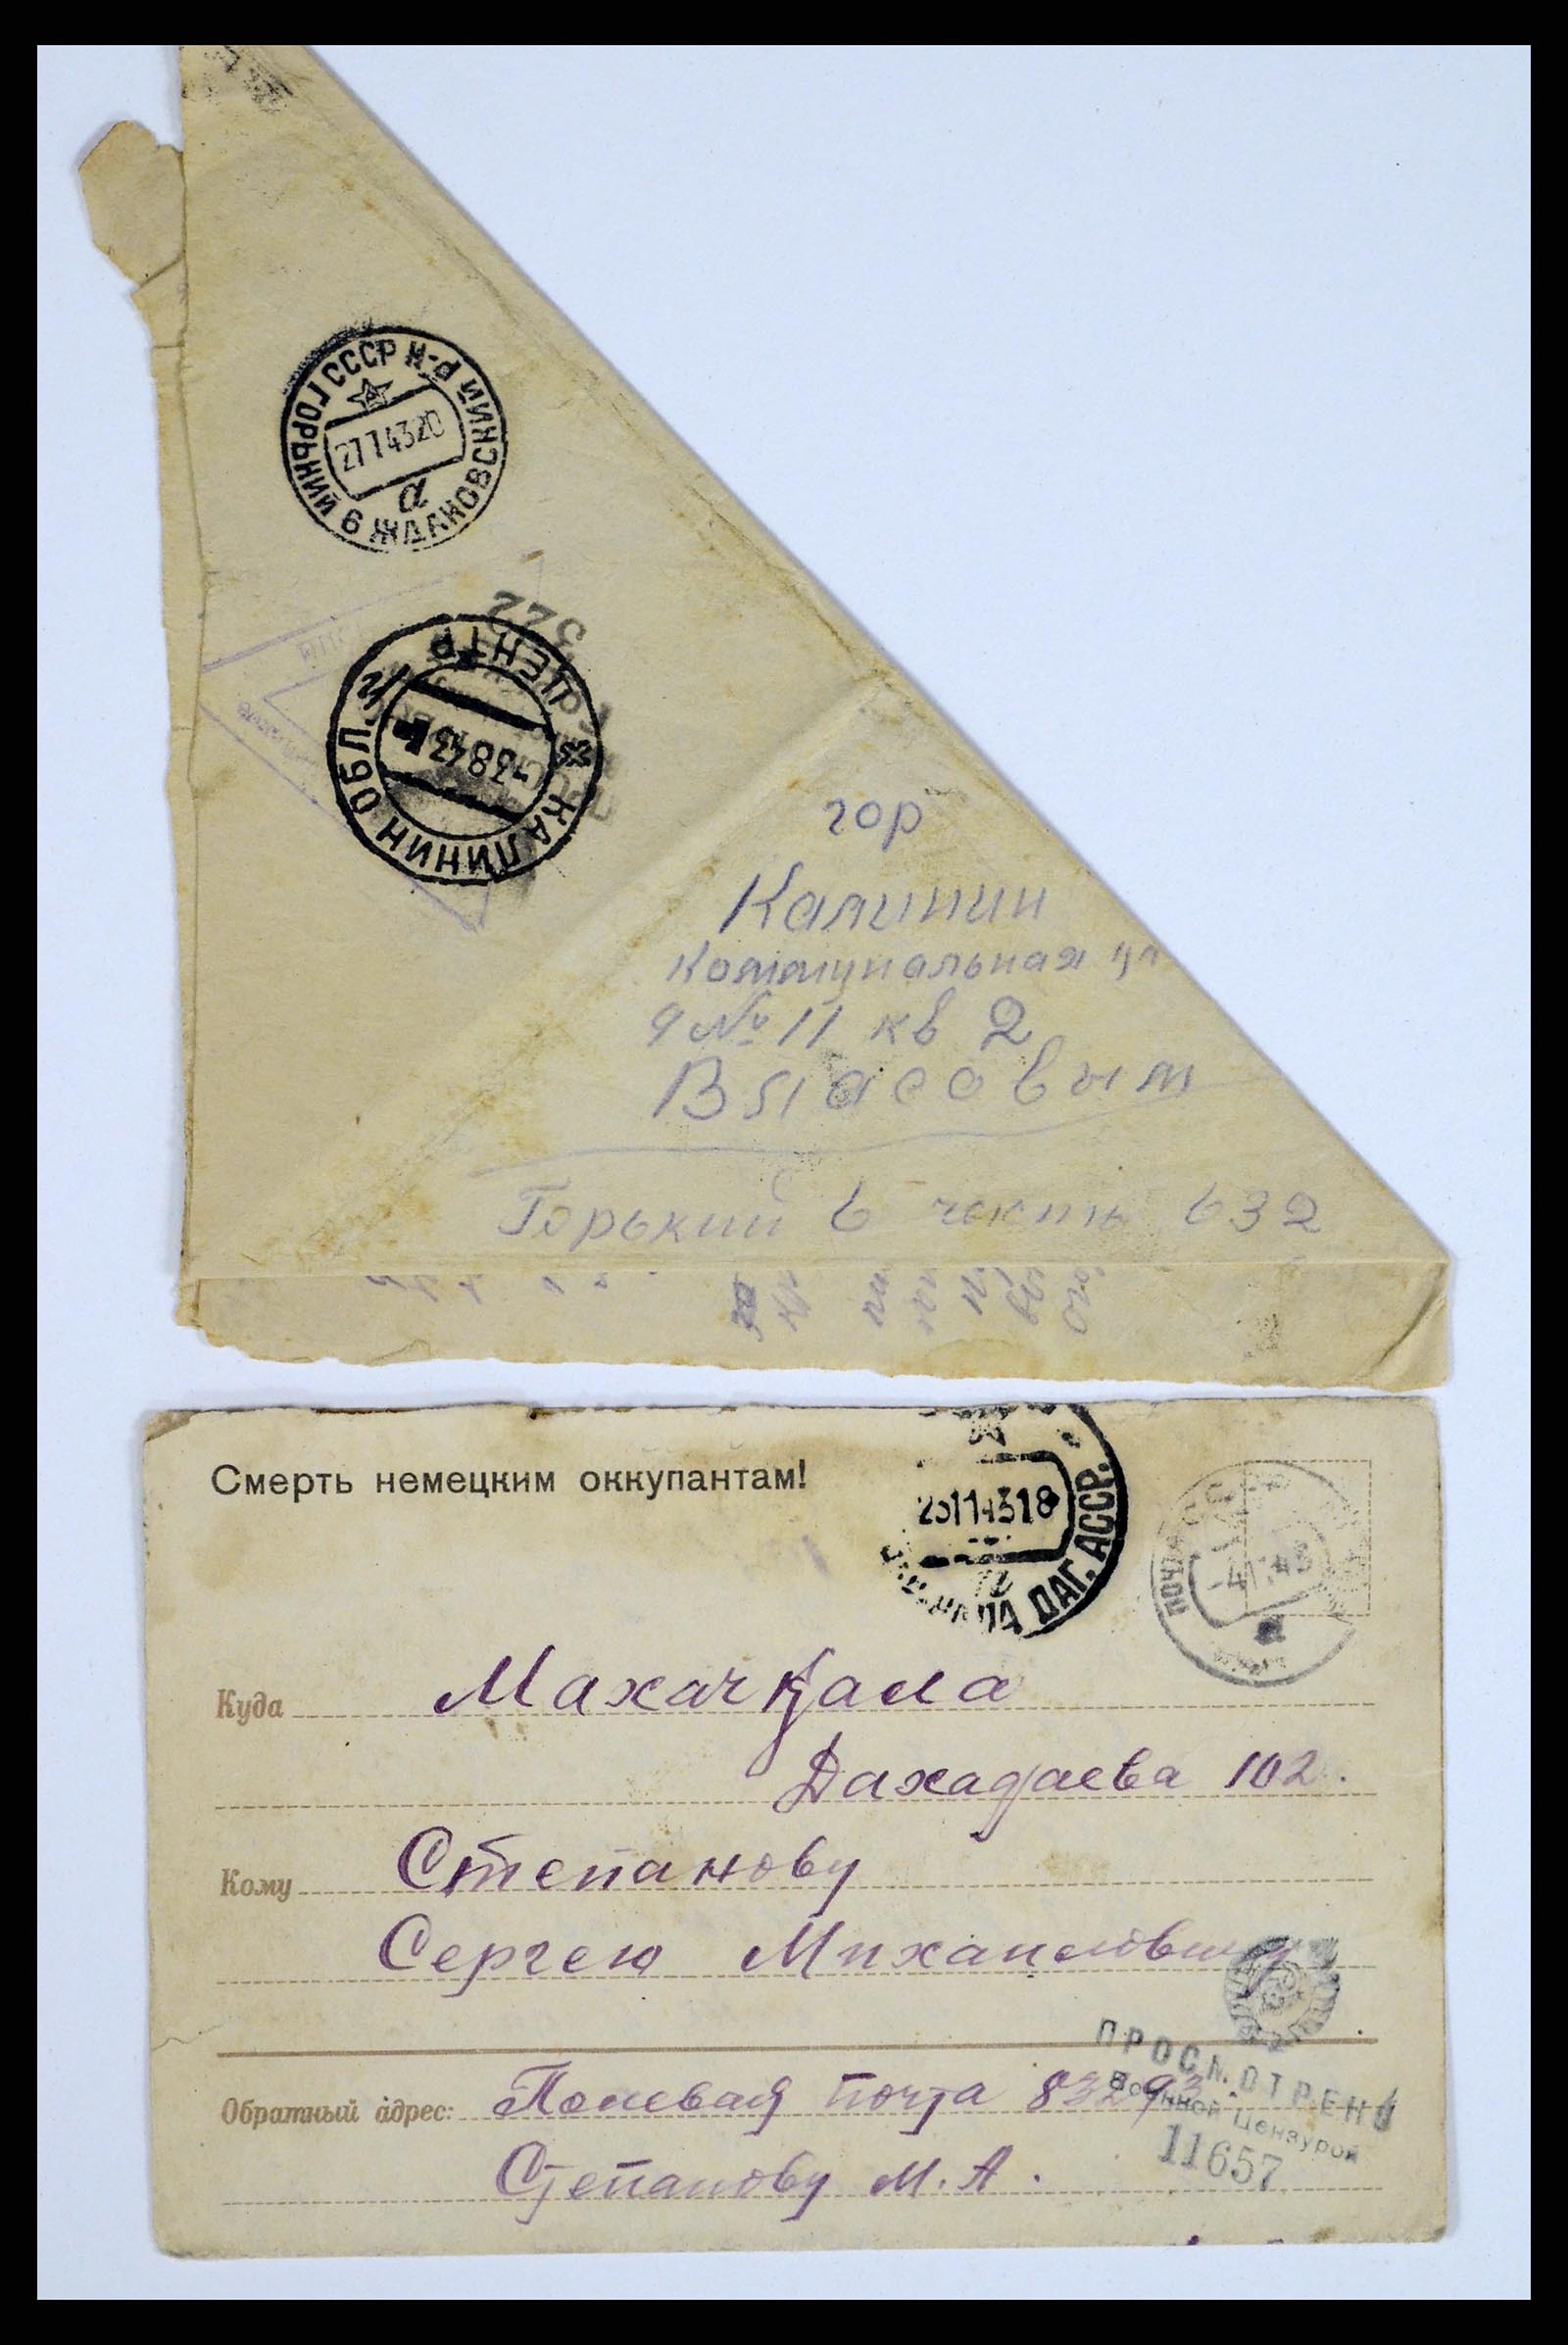 ГОРЬКИЙ 6 ЖДАНОВСКИЙ Р-Н СССР
27 7 43 20
а
322
КАЛИНИН ОБЛ. ЦЕНТР
-3 8 43
гор
Калинин
Коммунальная ул
д № 11 кв 2
Власовым
Горький 6 часть 632
Смерть немецким оккупантам!
ДАГ. АССР.
11 43 18
43
Куда Махачкала
Дахадаева 102.
Кому Степанову
Сергею Михайловичу
ПРОСМОТРЕНО
Военной Цензурой
11657
Обратный адрес: Полевая почта 83293
Степанову М. А.